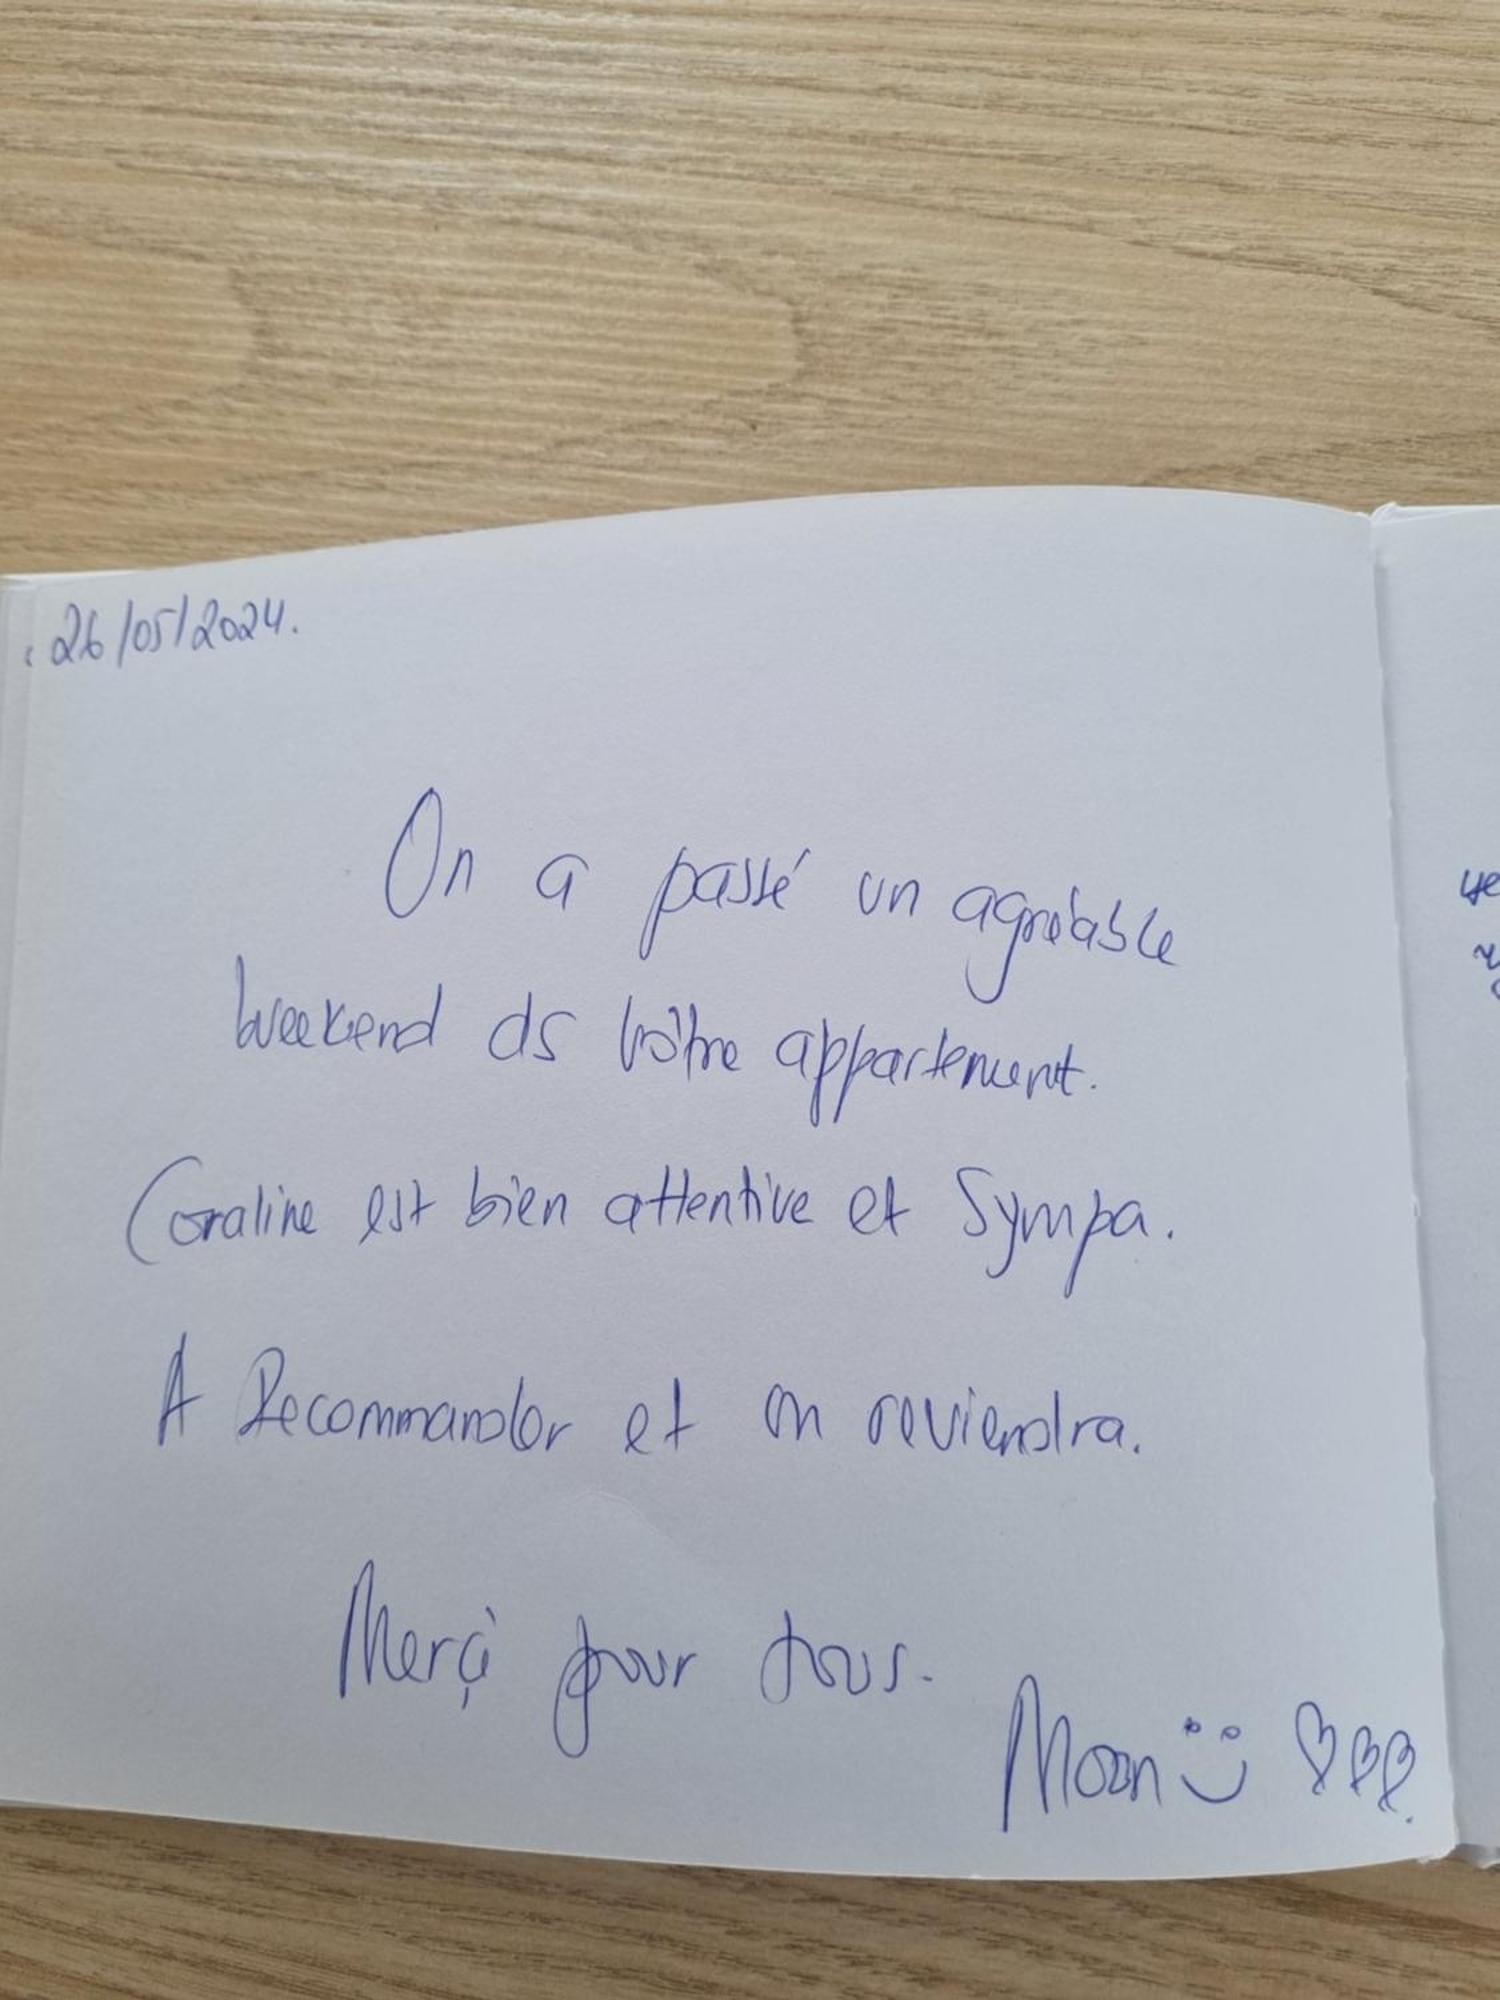 26/05/2024.
On a passé un agréable
weekend ds vôtre appartement.
Coraline est bien attentive et Sympa.
A Recommander et on reviendra.
Merçi pour tous.
Moon